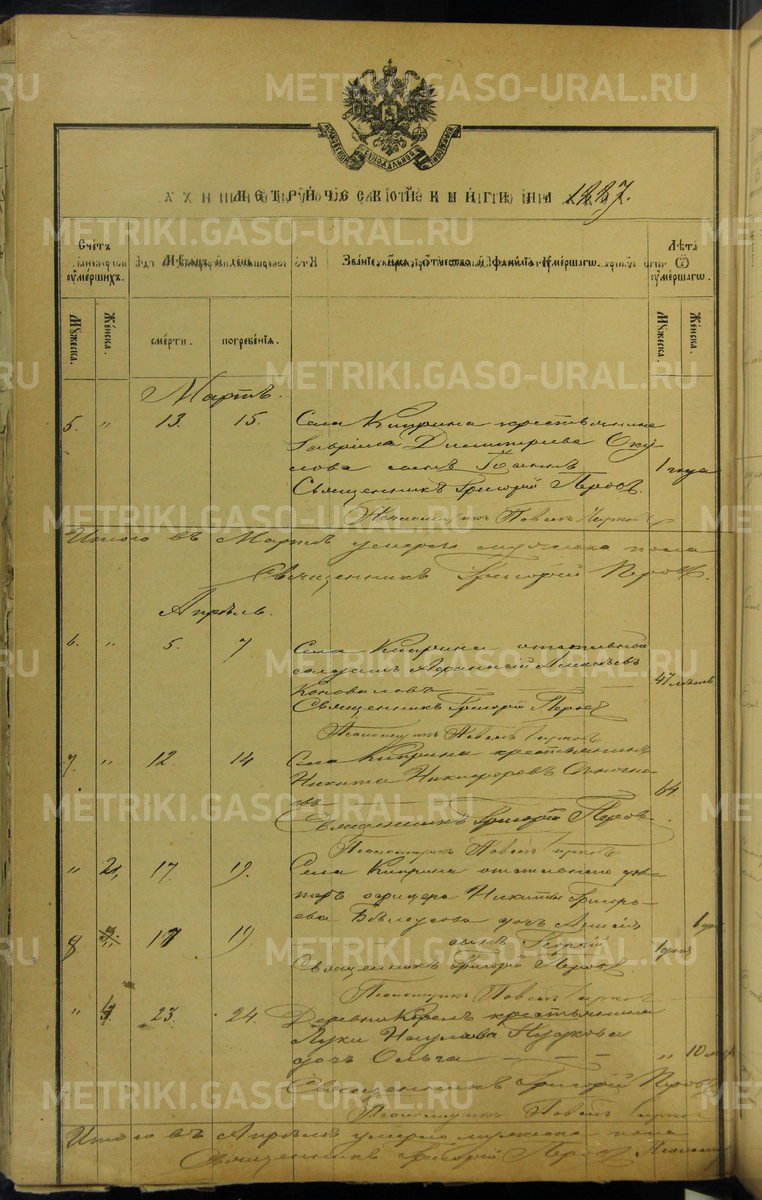 METRIKI.GASO-URAL.RU
МЕТРИЧЕСКОЙ КНИГИ НА 1887.
Счетъ умершихъ.
Мужеска.
Женска.
Мѣсяцъ и день
смерти.
погребенія.
Званіе, имя, отчество и фамилія умершаго.
Лѣта умершаго.
Мужеска.
Женска.
Мартъ.
5. " 13. 15. Села Киприна крестьянина
Гавріила Димитріева Оку
лова сынъ Іоаннъ 1 года
Священникъ Григорій Перовъ.
Псаломщикъ Павелъ
Итого въ Мартѣ умерло мужеска пола
Священникъ Григорій Перовъ.
Апрѣль.
6. " 5. 7 Села Киприна отставной
солдатъ Афанасій Алексѣевъ
Коноваловъ 47 лѣтъ
Священникъ Григорій Перовъ
Псаломщикъ Павелъ
7. " 12. 14 Села Киприна крестьянинъ
Никита Никифоровъ
64.
Священникъ Григорій Перовъ
Псаломщикъ Павелъ
" 2. 17. 19. Села Киприна отставного ун
теръ офицера Никиты Григорь
ева Бѣлоусова дочь
8 17 19 сынъ Георгій
Священникъ Григорій Перовъ
Псаломщикъ Павелъ
" 3 23. 24. Деревни крестьянина
Луки Наумова
дочь Ольга " 10
Священникъ Григорій Перовъ
Псаломщикъ Павелъ
Итого въ Апрѣлѣ умерло мужеска пола
Священникъ Григорій Перовъ